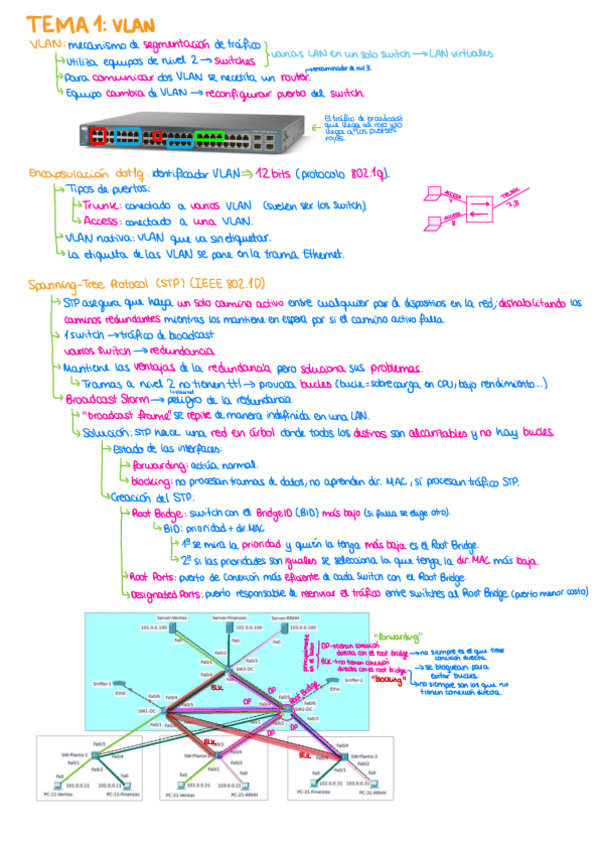 TEMA 1: VLAN
VLAN: mecanismo de segmentación de tráfico
varias LAN en un solo switch → LAN virtuales
Utiliza equipos de nivel 2 → switches
encaminador de nivel 3
Para comunicar dos VLAN se necesita un router.
Equipo cambia de VLAN → reconfigurar puerto del switch.
El tráfico de broadcast
que llega al rojo solo
llega a los puertos
rojos.
Encapsulación dot1q: identificador VLAN ⇒ 12 bits (protocolo 802.1q).
Tipos de puertos:
Trunk: conectado a varios VLAN (suelen ser los switch).
Access: conectado a una VLAN.
VLAN nativa: VLAN que va sin etiquetar.
La etiqueta de las VLAN se pone en la trama Ethernet.
ACCESS
TRUNK
ACCESS
Spanning-Tree Rotocol (STP) (IEEE 802.1D)
STP asegura que haya un solo camino activo entre cualquier par de dispositivos en la red, deshabilitando los
caminos redundantes mientras los mantiene en espera por si el camino activo falla.
1 switch → tráfico de broadcast
varios switch → redundancia
Mantiene las ventajas de la redundancia pero soluciona sus problemas.
Tramas a nivel 2 no tienen ttl → provoca bucles (bucle = sobrecarga en CPU, bajo rendimiento...)
ethernet
Broadcast Storm → peligro de la redundancia.
"broadcast frame" se repite de manera indefinida en una LAN.
Solución: STP hace una red en árbol donde todos los destinos son alcanzables y no hay bucles.
Estado de las interfaces:
forwarding: actúa normal.
blocking: no procesan tramas de datos, no aprenden dir. MAC, sí procesan tráfico STP.
Creación del STP:
Root Bridge: switch con el Bridge ID (BID) más bajo (si falla se elige otro).
BID: prioridad + dir. MAC
1º se mira la prioridad y quién la tenga más baja es el Root Bridge.
2º si las prioridades son iguales se selecciona la que tenga la dir. MAC más baja.
Root Ports: puerto de conexión más eficiente de cada switch con el Root Bridge.
Designated Ports: puerto responsable de reenviar el tráfico entre switches al Root Bridge (puerto menor costo)
Server-Ventas
Server-Finanzas
Server-RRHH
101.0.0.100
102.0.0.100
103.0.0.100
"forwarding"
DP → tienen conexión
directa con el root bridge → no siempre es el que tiene
conexión directa.
BLK → no tienen conexión
directa con el root bridge → se bloquean para
evitar bucles.
"Blocking"
no siempre son los que no
tienen conexión directa.
Sniffer-1
Eth0
SW3-DC
BLK
DP
Root Bridge
Sniffer-2
Eth0
SW1-DC
SW2-DC
DP
DP
BLK
BLK
SW-Planta-1
SW-Planta-3
PC-11-Ventas
101.0.0.11
102.0.0.11
PC-11-Finanzas
PC-21-Ventas
101.0.0.21
103.0.0.21
PC-21-RRHH
PC-31-Finanzas
102.0.0.31
103.0.0.31
PC-31-RRHH